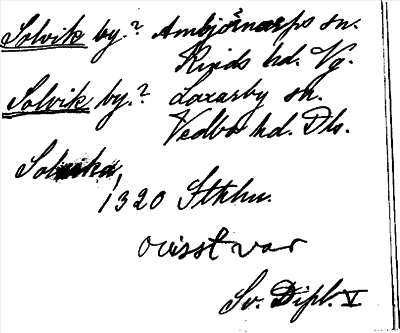 Solvik by.? Ambjörnarps sn.
Kinds hd. Vg.
Solvik by.? Laxarby sn.
Vedbo hd. Dls.
1320 Sthlm.
ovisst var
Sv. Dipl. V.